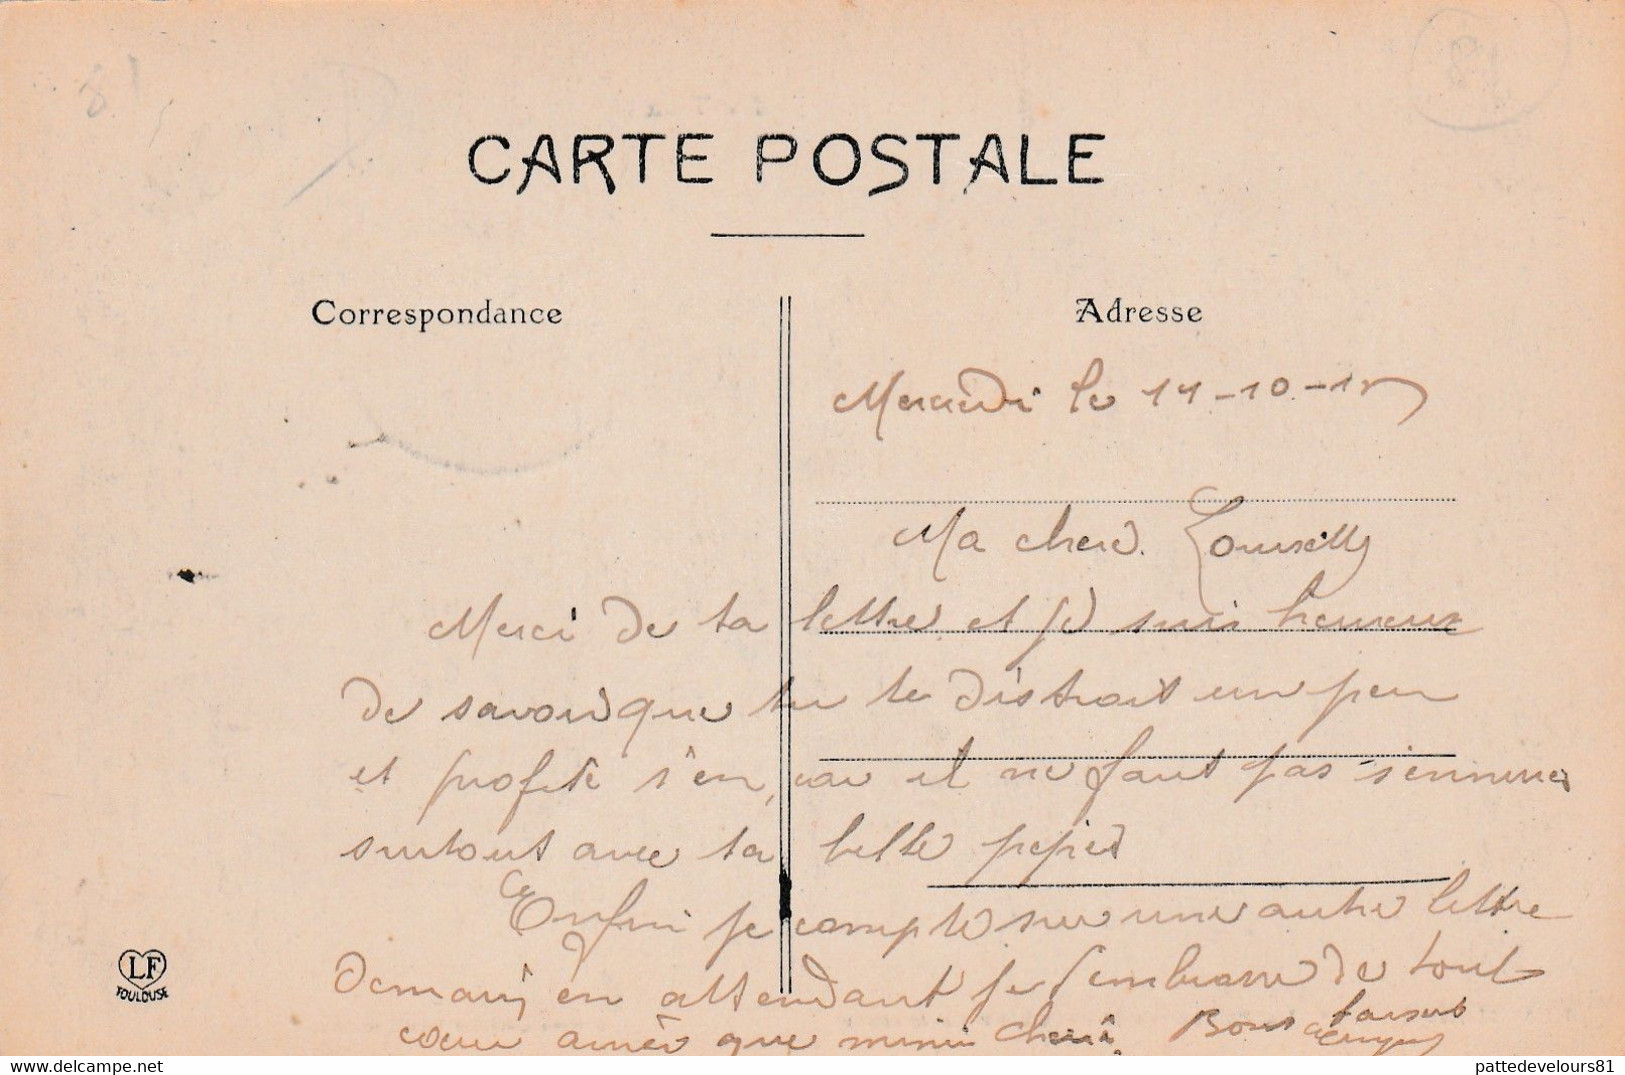 CARTE POSTALE
Correspondance
Adresse
Mercredi le 14-10-15
Ma chere
Merci de ta lettre et je suis heureux
de savoir que tu te distrait un peu
et profite s'en, car il ne faut pas s'ennuier
surtout avec ta belle
Enfin je compte sur une autre lettre
demain, en attendant je t'embrasse de tout
coeur ainsi que mimi cheri. Bons
LF
TOULOUSE
Delcampe.net
pattedevelours81